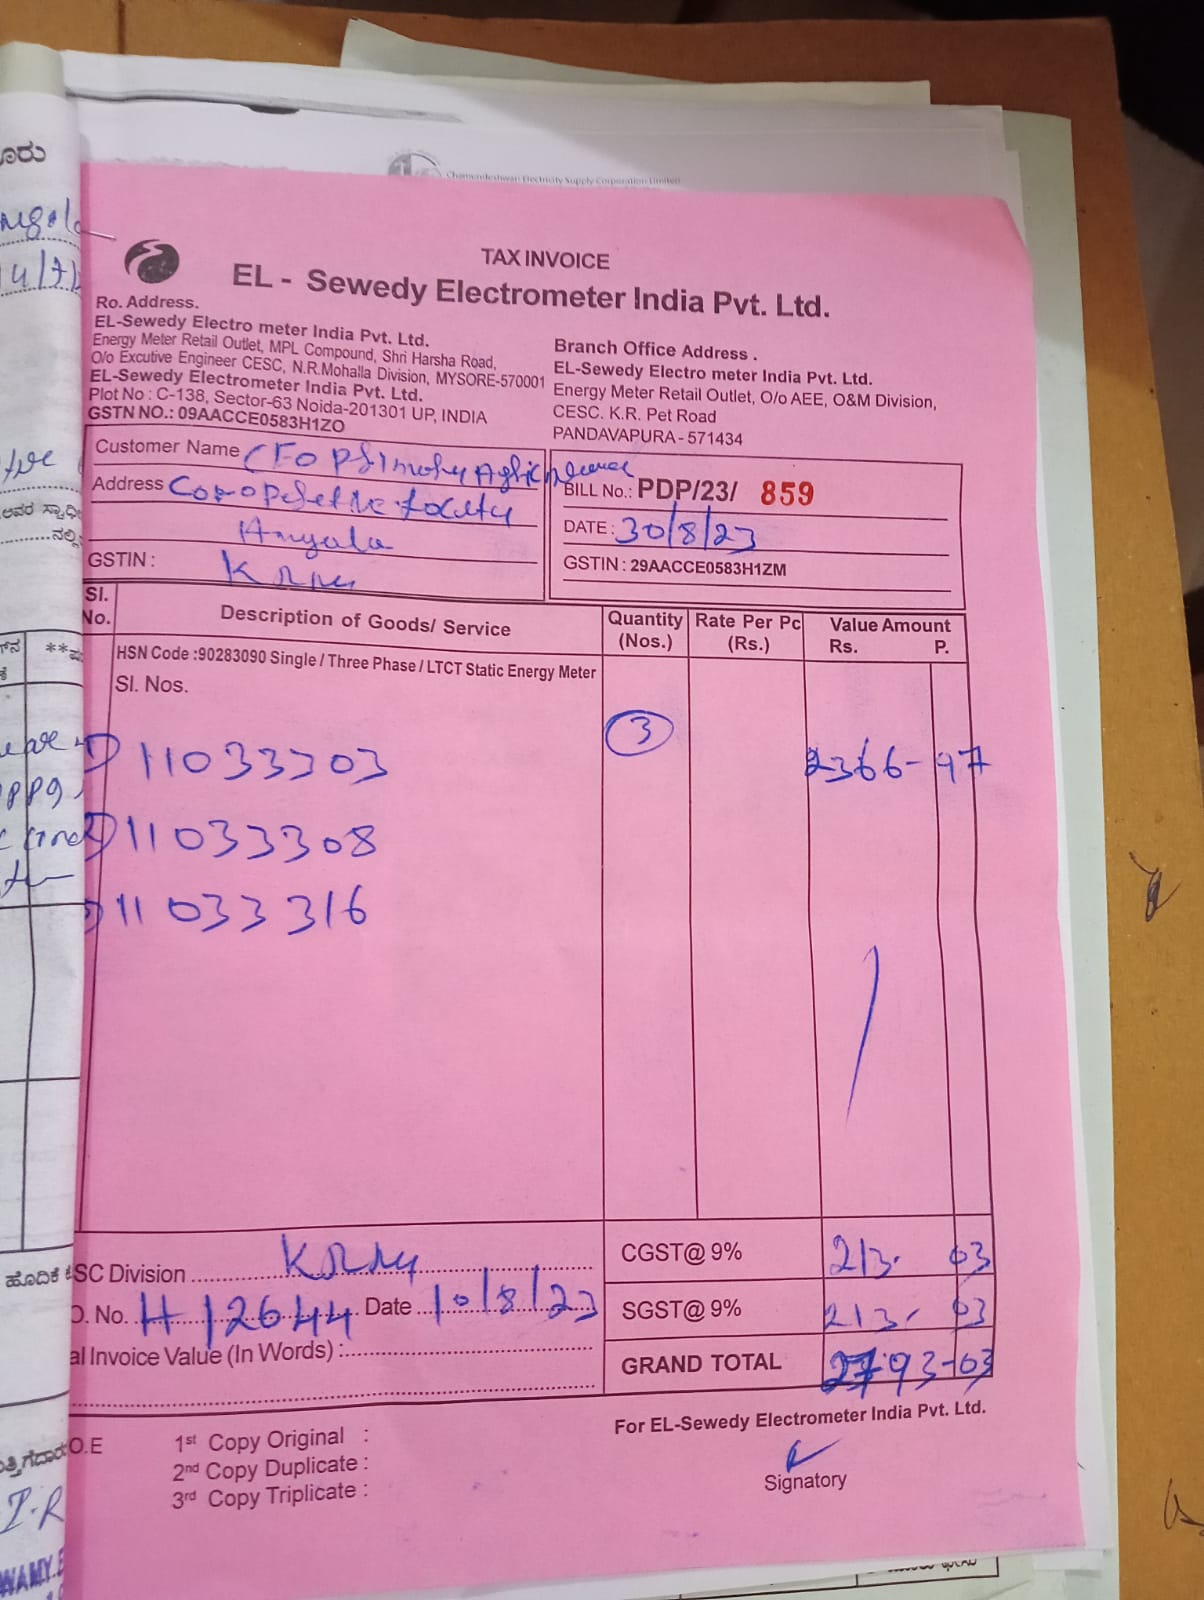 Chamundeshwari Electricity Supply Corporation Limited
TAX INVOICE
EL - Sewedy Electrometer India Pvt. Ltd.
Ro. Address.
EL-Sewedy Electro meter India Pvt. Ltd.
Energy Meter Retail Outlet, MPL Compound, Shri Harsha Road,
O/o Excutive Engineer CESC, N.R.Mohalla Division, MYSORE-570001
EL-Sewedy Electrometer India Pvt. Ltd.
Plot No : C-138, Sector-63 Noida-201301 UP, INDIA
GSTN NO.: 09AACCE0583H1ZO
Branch Office Address .
EL-Sewedy Electro meter India Pvt. Ltd.
Energy Meter Retail Outlet, O/o AEE, O&M Division,
CESC. K.R. Pet Road
PANDAVAPURA - 571434
Customer Name CEO
Address
Angala
GSTIN :
BILL No.: PDP/23/ 859
DATE : 30/8/23
GSTIN : 29AACCE0583H1ZM
Sl. No. Description of Goods/ Service Quantity (Nos.) Rate Per Pc (Rs.) Value Amount Rs. P.
HSN Code :90283090 Single / Three Phase / LTCT Static Energy Meter
Sl. Nos.
1) 11033303 3 2366-97
2) 11033308
3) 11033316
SC Division
CGST@ 9% 213. 03
O. No. H12644 Date 10/8/23
SGST@ 9% 213. 03
al Invoice Value (In Words) :
GRAND TOTAL 2793-03
For EL-Sewedy Electrometer India Pvt. Ltd.
O.E
1st Copy Original :
2nd Copy Duplicate :
3rd Copy Triplicate :
Signatory